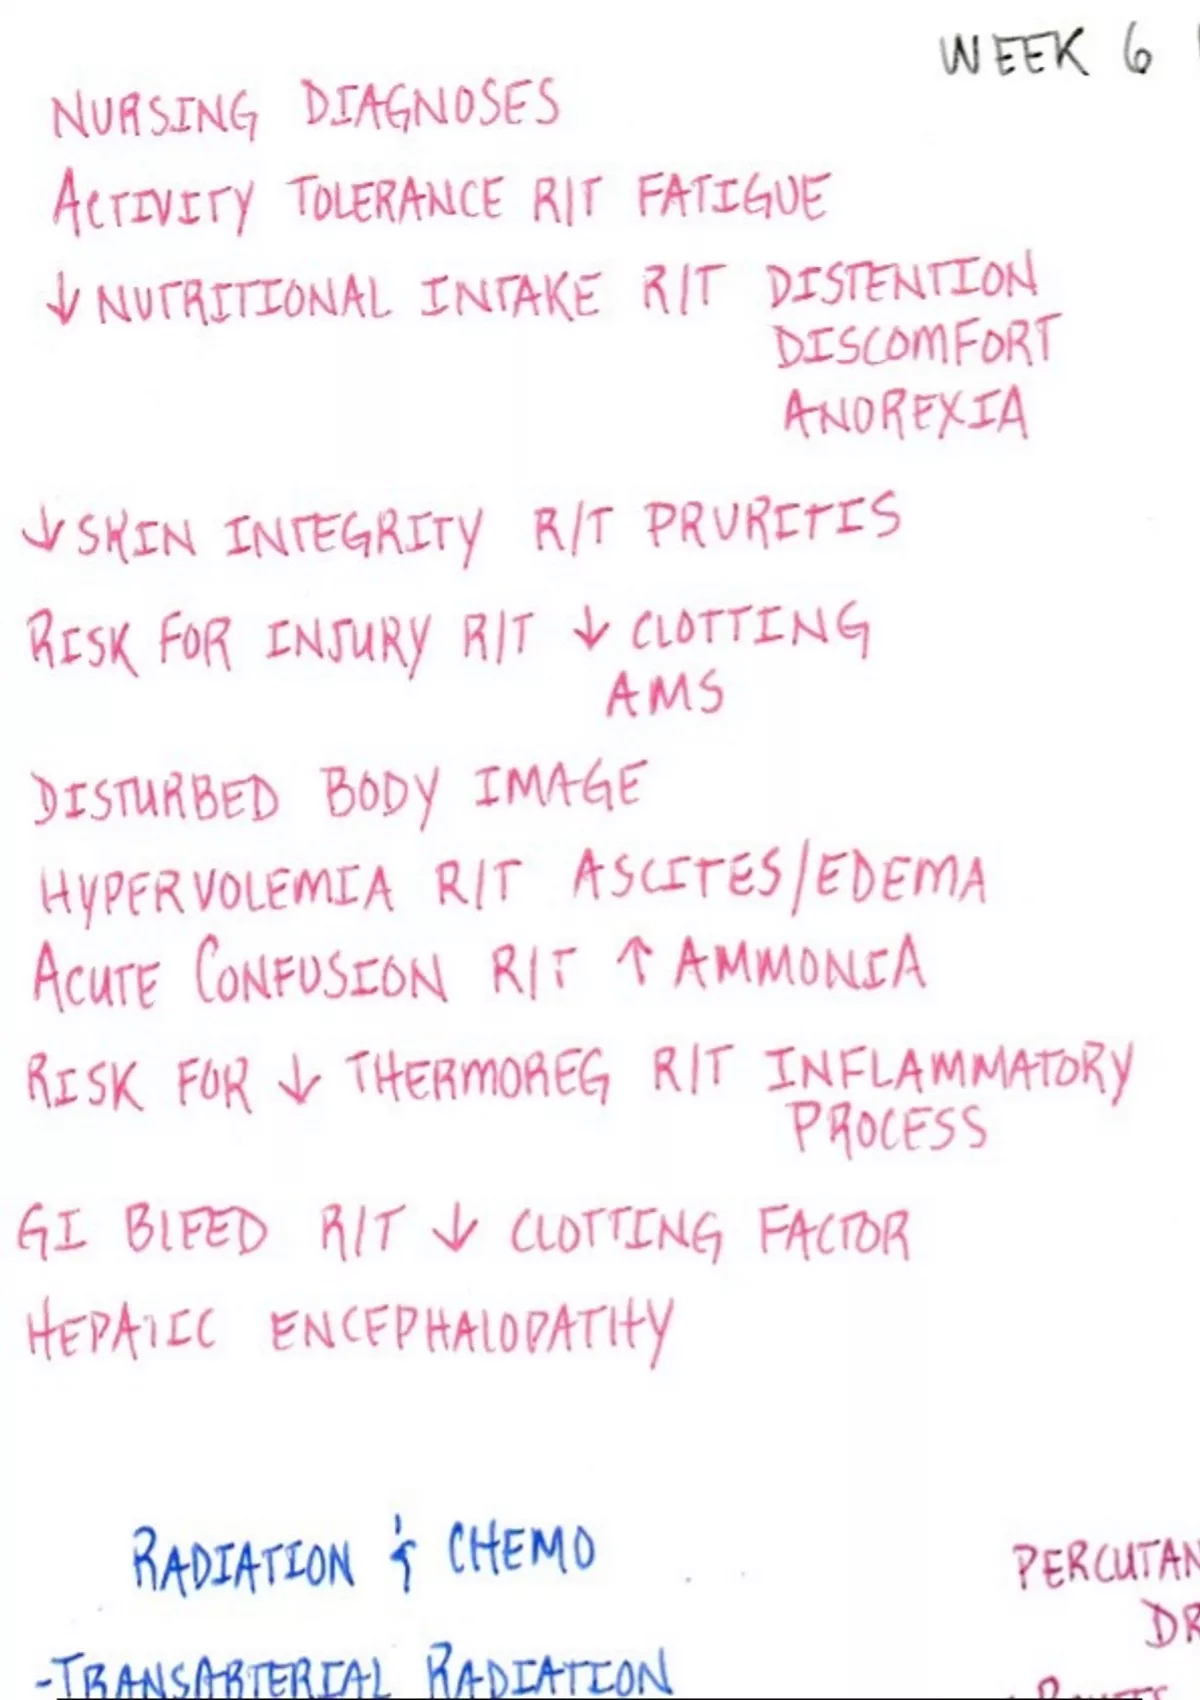 WEEK 6
NURSING DIAGNOSES
ACTIVITY TOLERANCE R/T FATIGUE
↓ NUTRITIONAL INTAKE R/T DISTENTION
DISCOMFORT
ANOREXIA
↓ SKIN INTEGRITY R/T PRURITIS
RISK FOR INJURY R/T ↓ CLOTTING
AMS
DISTURBED BODY IMAGE
HYPERVOLEMIA R/T ASCITES/EDEMA
ACUTE CONFUSION R/T ↑ AMMONIA
RISK FOR ↓ THERMOREG R/T INFLAMMATORY
PROCESS
GI BLEED R/T ↓ CLOTTING FACTOR
HEPATIC ENCEPHALOPATHY
RADIATION & CHEMO
PERCUTAN
DR
-TRANSARTERIAL RADIATION